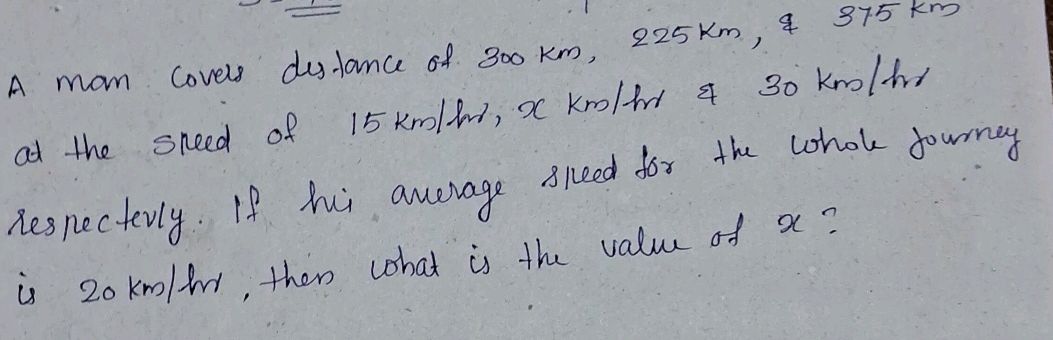 A man covers distance of 300 Km, 225 Km, & 375 Km
at the speed of 15 Km/hr, x Km/hr & 30 km/hr
respectevly. If his average speed for the whole journey
is 20 km/hr, then what is the value of x?